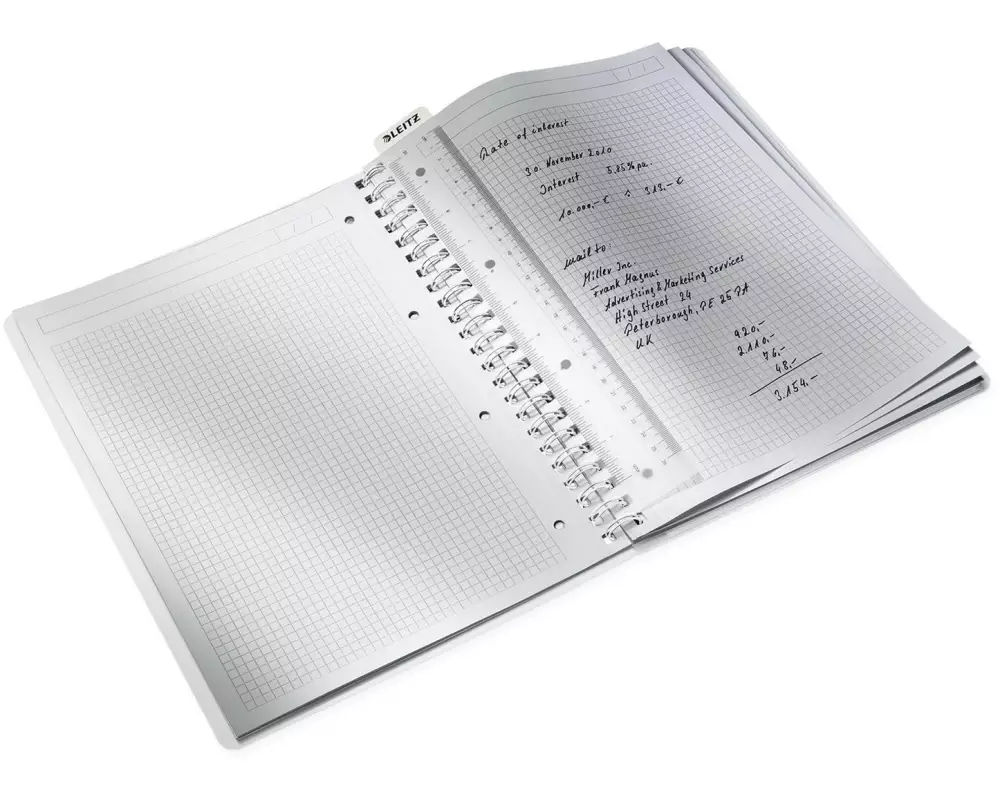 LEITZ
Rate of interest
30. November 2010
Interest 5.85% pa.
10.000,- € ÷ 313,- €
mail to:
Miller Inc.
Frank Magnus
Advertising & Marketing Services
High Street 24
Peterborough, PE 25 PA
UK
920,-
2.110,-
76,-
48,-
3.154,-